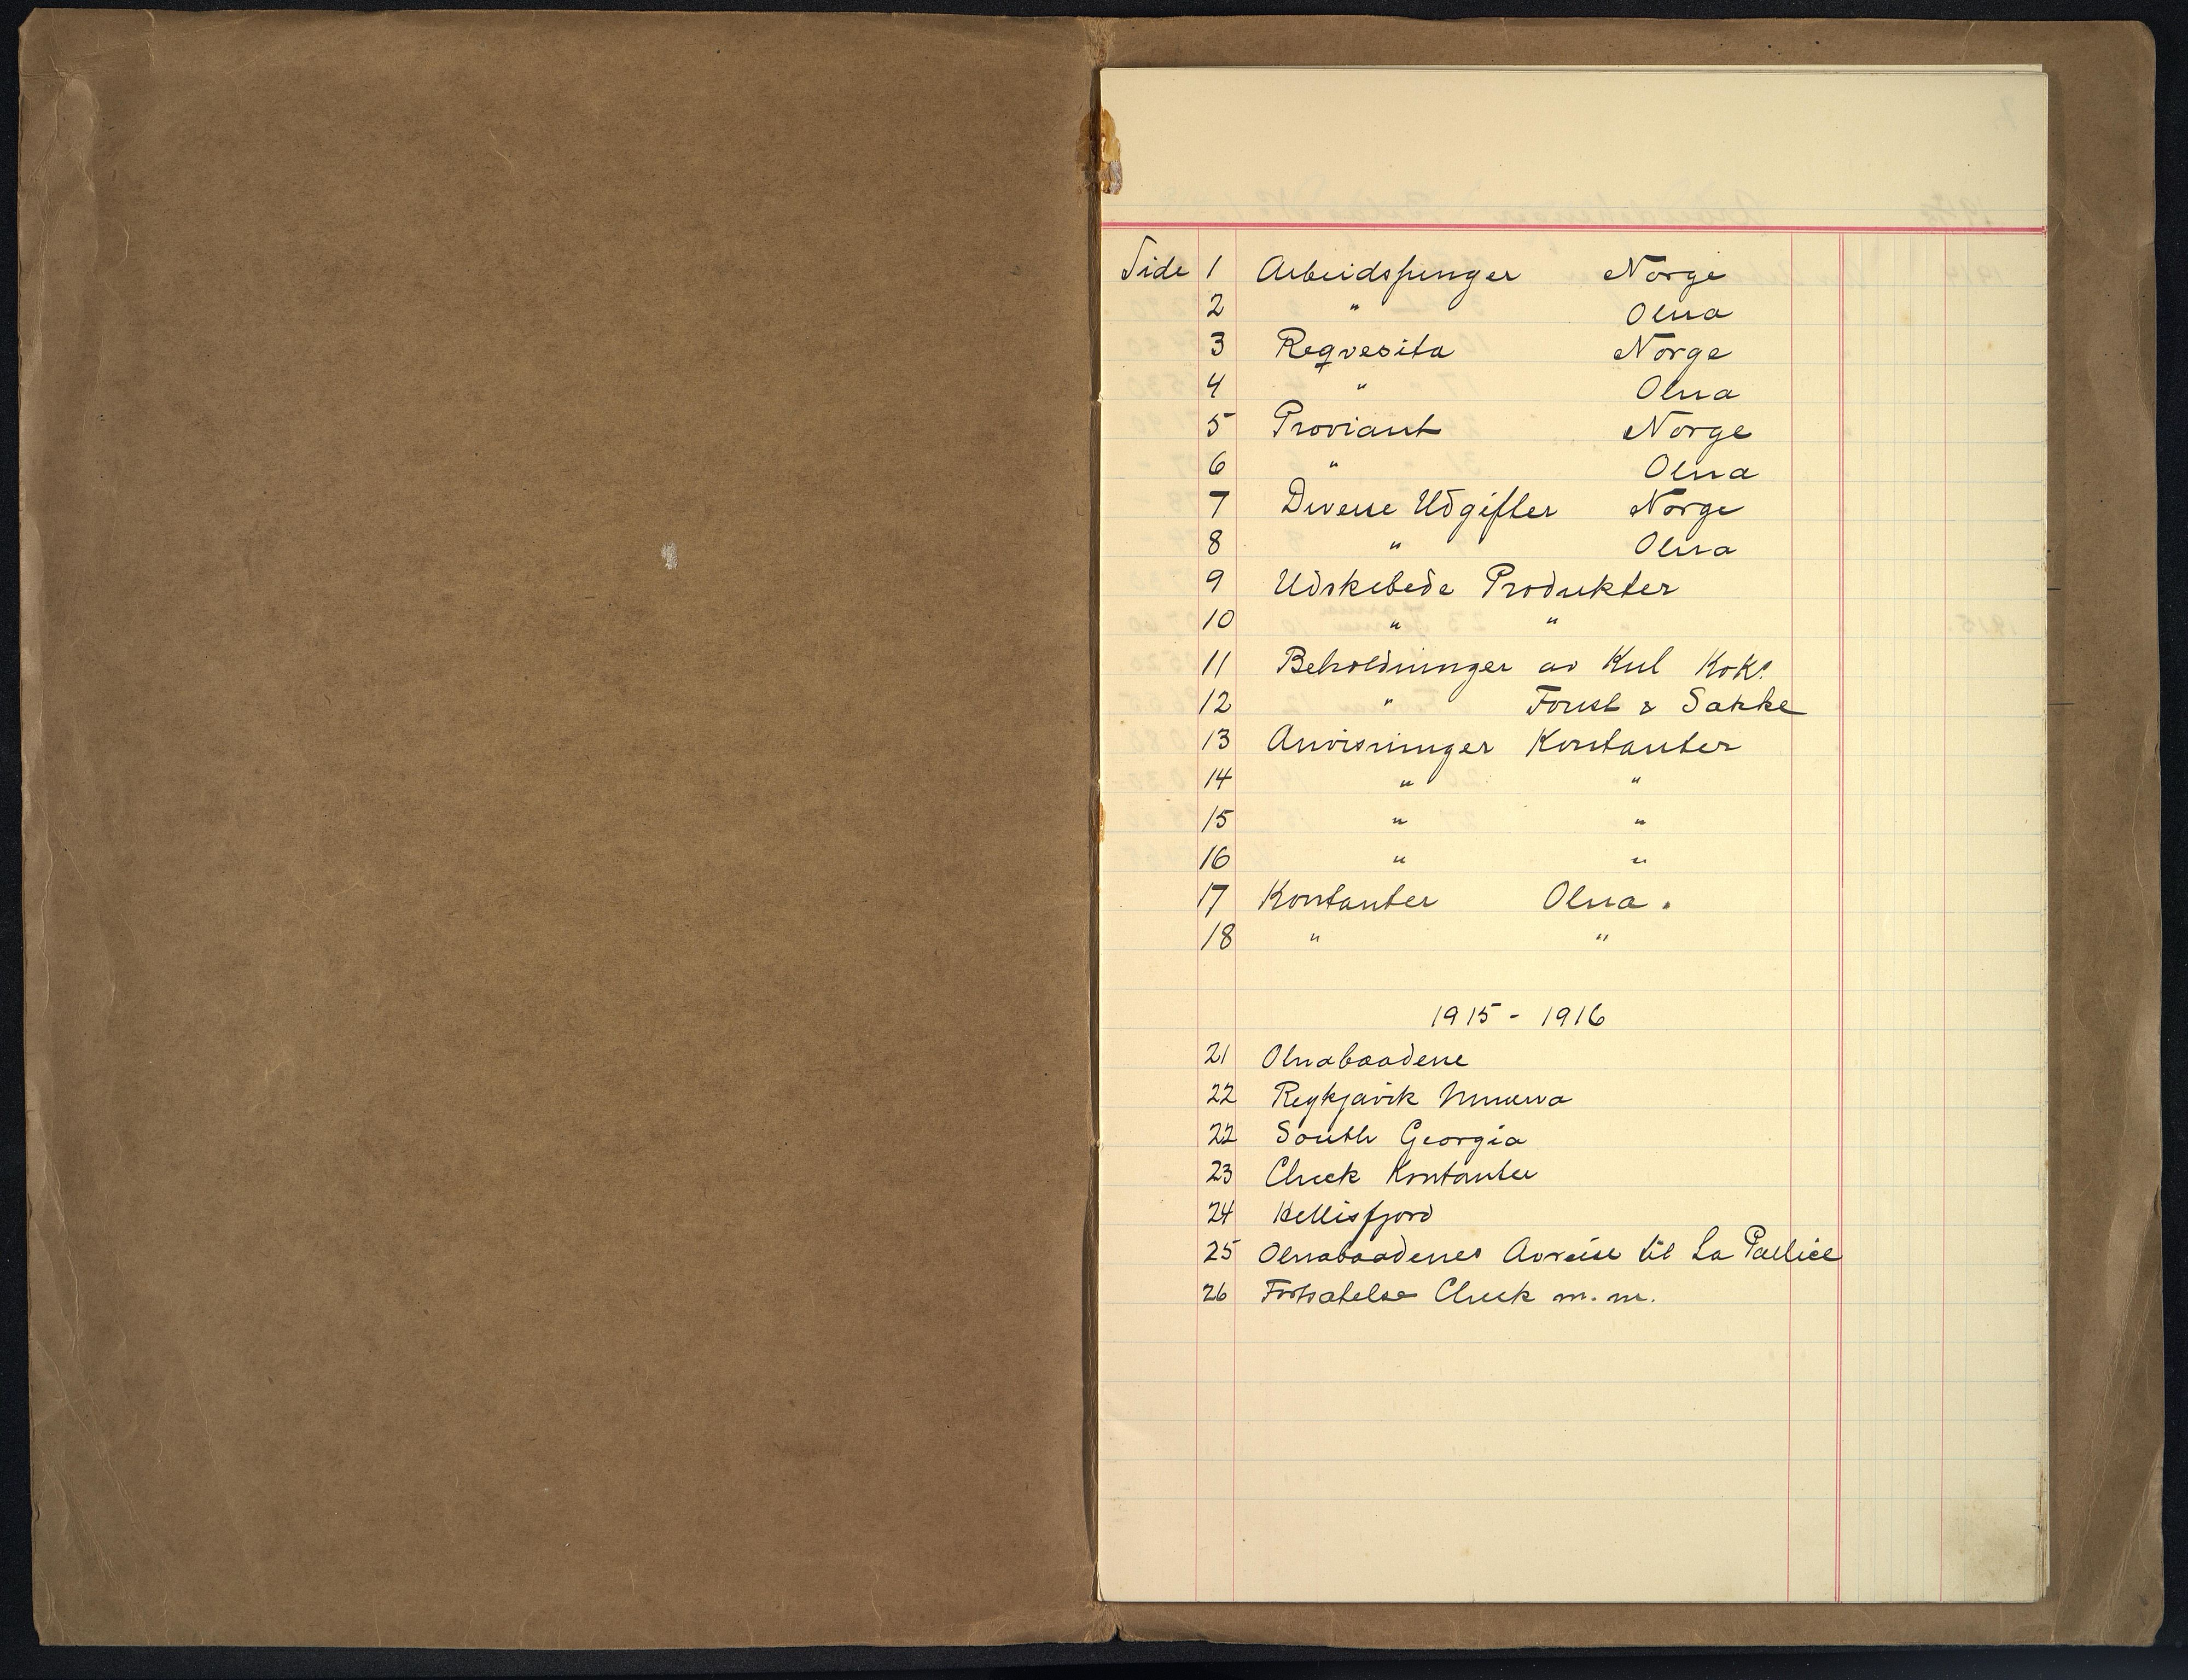 Side 1 Arbeidspenger Norge
2 " Olna
3 Reqvesita Norge
4 " Olna
5 Proviant Norge
6 " Olna
7 Diverse Udgifter Norge
8 " Olna
9 Udskibede Produkter
10 " "
11 Beholdninger av Kul Koks
12 " Tomt & Sække
13 Anvisninger Kontanter
14 " "
15 " "
16 " "
17 Kontanter Olna.
18 " "
1915 - 1916
21 Olnabaadene
22 Reykjavik
22 South Georgia
23 Check Kontanter
24 Hellisfjord
25 Olnabaadenes Avreise til La Pallice
26 Fortsatelse Check m.m.